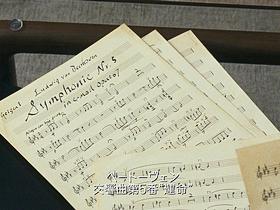 Ludwig van Beethoven
Geige I
Symphonie Nr. 5
in c-moll op. 67
ベートーヴェン
交響曲第5番“運命”